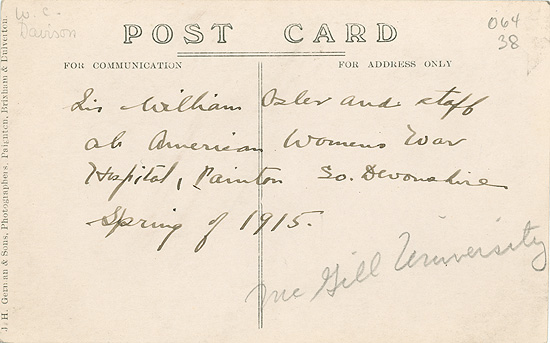 W. C. Davison
064
38
POST CARD
FOR COMMUNICATION
FOR ADDRESS ONLY
Sir William Osler and staff
at American Womens War
Hospital, Painton So. Devonshire
Spring of 1915.
McGill University
J. H. German & Sons, Photographers, Paignton, Brixham & Dulverton.